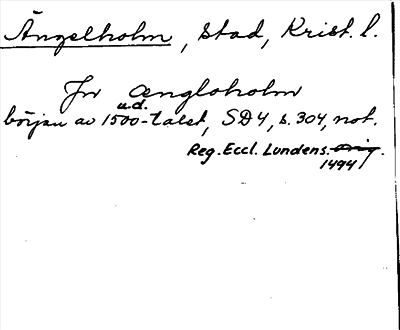 Ängelholm, stad, Krist. l.
Jn Ængloholm
u.d.
början av 1500-talet, SD4, s. 304, not.
Reg. Eccl. Lundens. orig.
1494